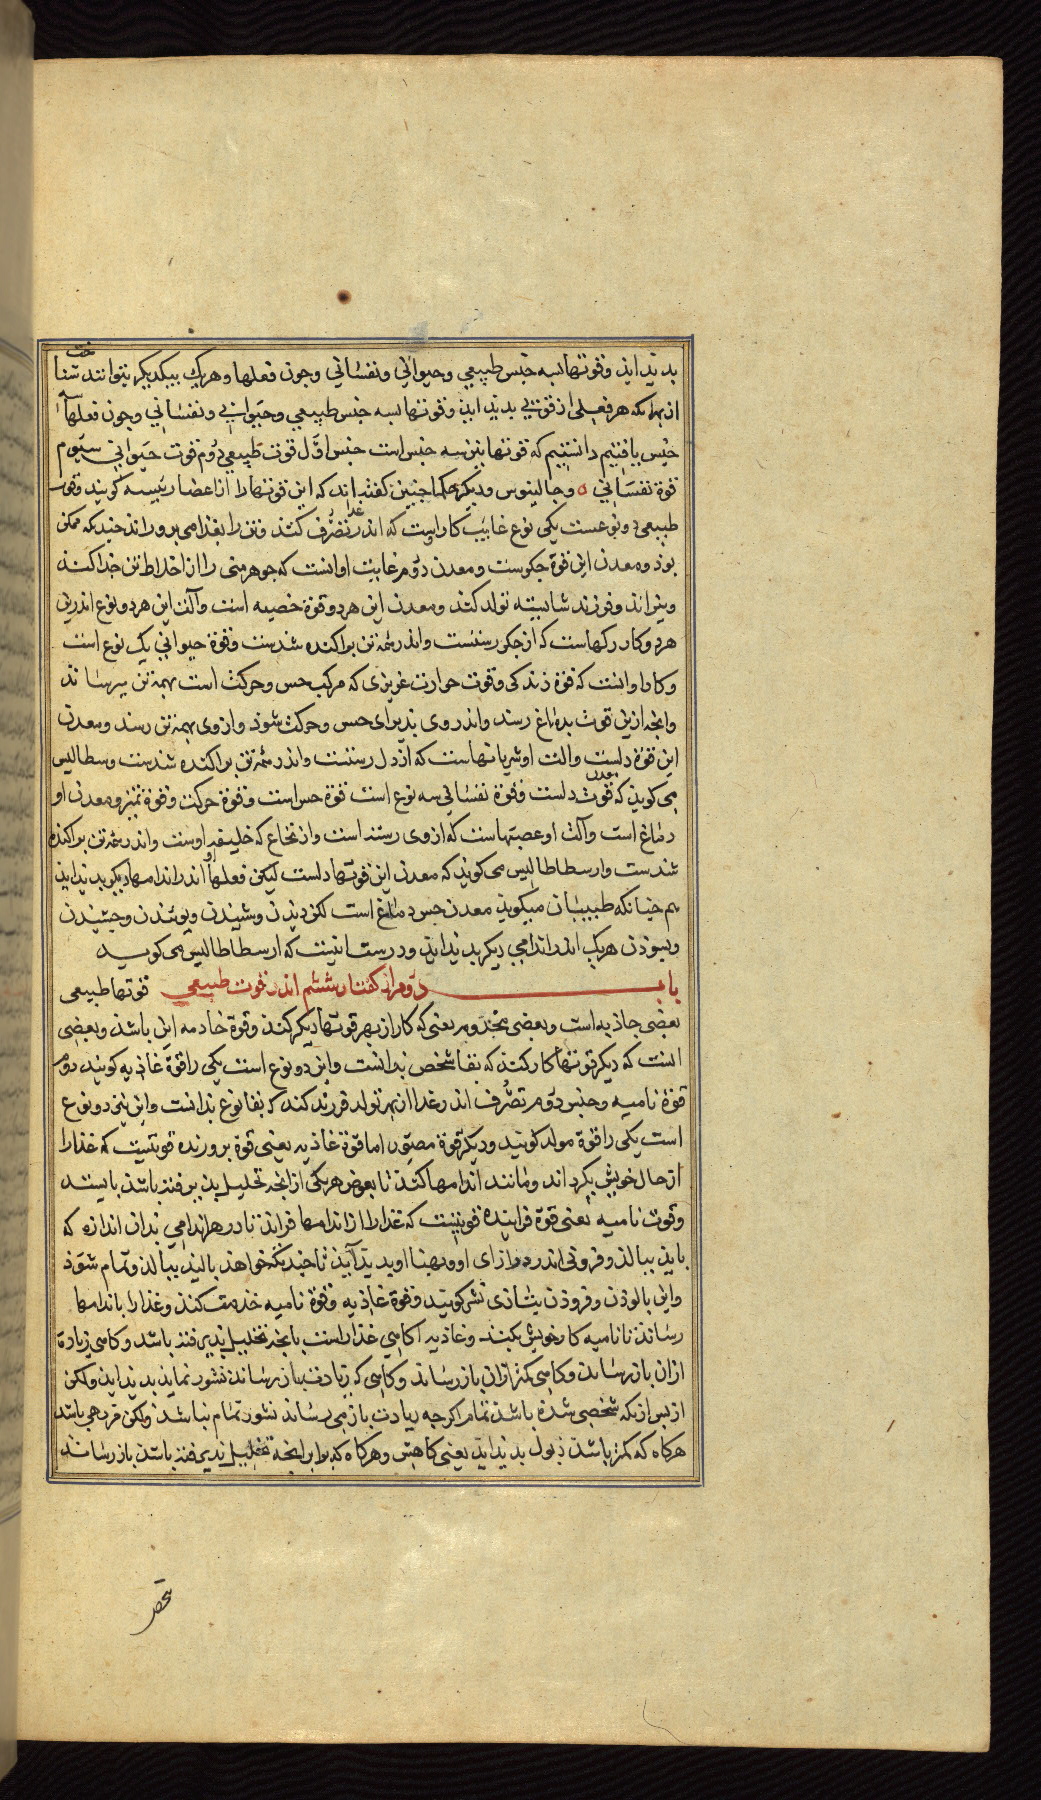 بدید اید و قوتها سه جنس طبیعی و حیوانی و نفسانی و چون فعلها و هر یک بیکدیگر بتوانند شناخت
از بهر انکه هر فعلی از قوتی بدید اید و قوتها سه جنس طبیعی و حیوانی و نفسانی و چون فعلها سه
جنس یافتیم دانستیم که قوتها نیز سه جنس است جنس اول قوت طبیعی دوم قوت حیوانی سیوم
قوة نفسانی ه و جالینوس و دیگر حکما چنین گفته اند که این قوتها را از اعضا رئیسه گویند و قوت
طبیعی دو نوعست یکی نوع غایت کار اوست که اندر غذا تصرف کند و تن را بغذا می پروراند چندیکه ممکن
بود و معدن این قوة جگرست و معدن دوم غایت او انست که جوهر منی را از اخلاط تن جدا کند
و بپزاند و فرزند شایسته تولد کند و معدن این هر دو قوة خصیه است و آلت این هر دو نوع اندرین
هر دو کار رگهاست که از جگر رستست و اندر همه تن پراکنده شدست و قوة حیوانی یک نوع است
و کار او انست که قوة زندگی و قوت حرارت غریزی که مرکب حس و حرکت است بهمه تن میرساند
و انچه ازین قوت بدماغ رسد و اندر وی پذیرای حس و حرکت شود و از وی بهمه تن رسد و معدن
این قوة دلست و الت او شریانهاست که از دل رستست و اندر همه تن پراکنده شدست و سطالیس
می گوید که معدن قوت دلست و قوة نفسانی سه نوع است قوة حس است و قوة حرکت و قوة تمیز و معدن او
دماغ است و آلت او عصبهاست که از وی رسته است و از نخاع که خلیفه اوست و اندر همه تن پراکنده
شدست و ارسطاطالیس می گوید که معدن این قوتها دلست لیکن فعلها او اندر اندامها دیگر بدید اید
هم چنانکه طبیبان میگویند معدن حس دماغ است لکن دیدن و شنیدن و بوئیدن و چشیدن
و بسوذن هر یک اندر اندامی دیگر بدید اید و درست اینست که ارسطاطالیس می گوید
باب دوم از گفتار ششم اندر قوت طبیعی قوتها طبیعی
بعضی خادمه است و بعضی مخدوم یعنی که کار از بهر قوتها دیگر کند و قوة خادمه این باشد و بعضی
انست که دیگر قوتها کار کنند که بقا شخص بدانست و این دو نوع است یکی را قوة غاذیه گویند دوم
قوة نامیه و جنس دوم تصرف اندر غذا از بهر تولد فرزند کند که بقا نوع بدانست و این نیز دو نوع
است یکی را قوة مولد گویند و دیگر قوة مصور اما قوة غاذیه یعنی قوة پرورنده قوتیست که غذا را
از حال خویش بگرداند و مانند اندامها کند تا بعوض هر یکی از انچه تحلیل پذیرفته باشد بایستد
و قوت نامیه یعنی قوة فزاینده قوتیست که غذا را از اندامها فزاید تا در هر اندامی بدان اندازه که
باید ببالد و فزونی اندر درازای او و پهنا او بدید آید تا چندیکه خواهد بالید ببالد و تمام شود
و این بالوذن و فزوذن بتازی نشو گویند و قوة غاذیه و قوة نامیه خدمت کند و غذا را باندامها
رساند تا نامیه کار خویش بکند و غاذیه گاهی غذا راست با انچه تحلیل پذیرفته باشد و گاهی زیادة
از ان باز رساند و گاهی کمتر از ان باز رساند و گاهی که زیادت باز رساند نشو نماید بدید اید ولکن
از پس از انکه شخصی شده باشد تمام اگرچه زیادت باز می رساند نشو تمام نباشد ولکن فربهی باشد
هرگاه که کمتر باشد ذبول بدید اید یعنی کاهش و هرگاه که برابر انچه تحلیل پذیرفته باشد باز رساند
شخص